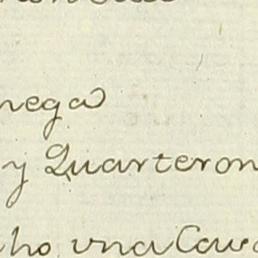 nega
y Quarteron
ho, vna Cava